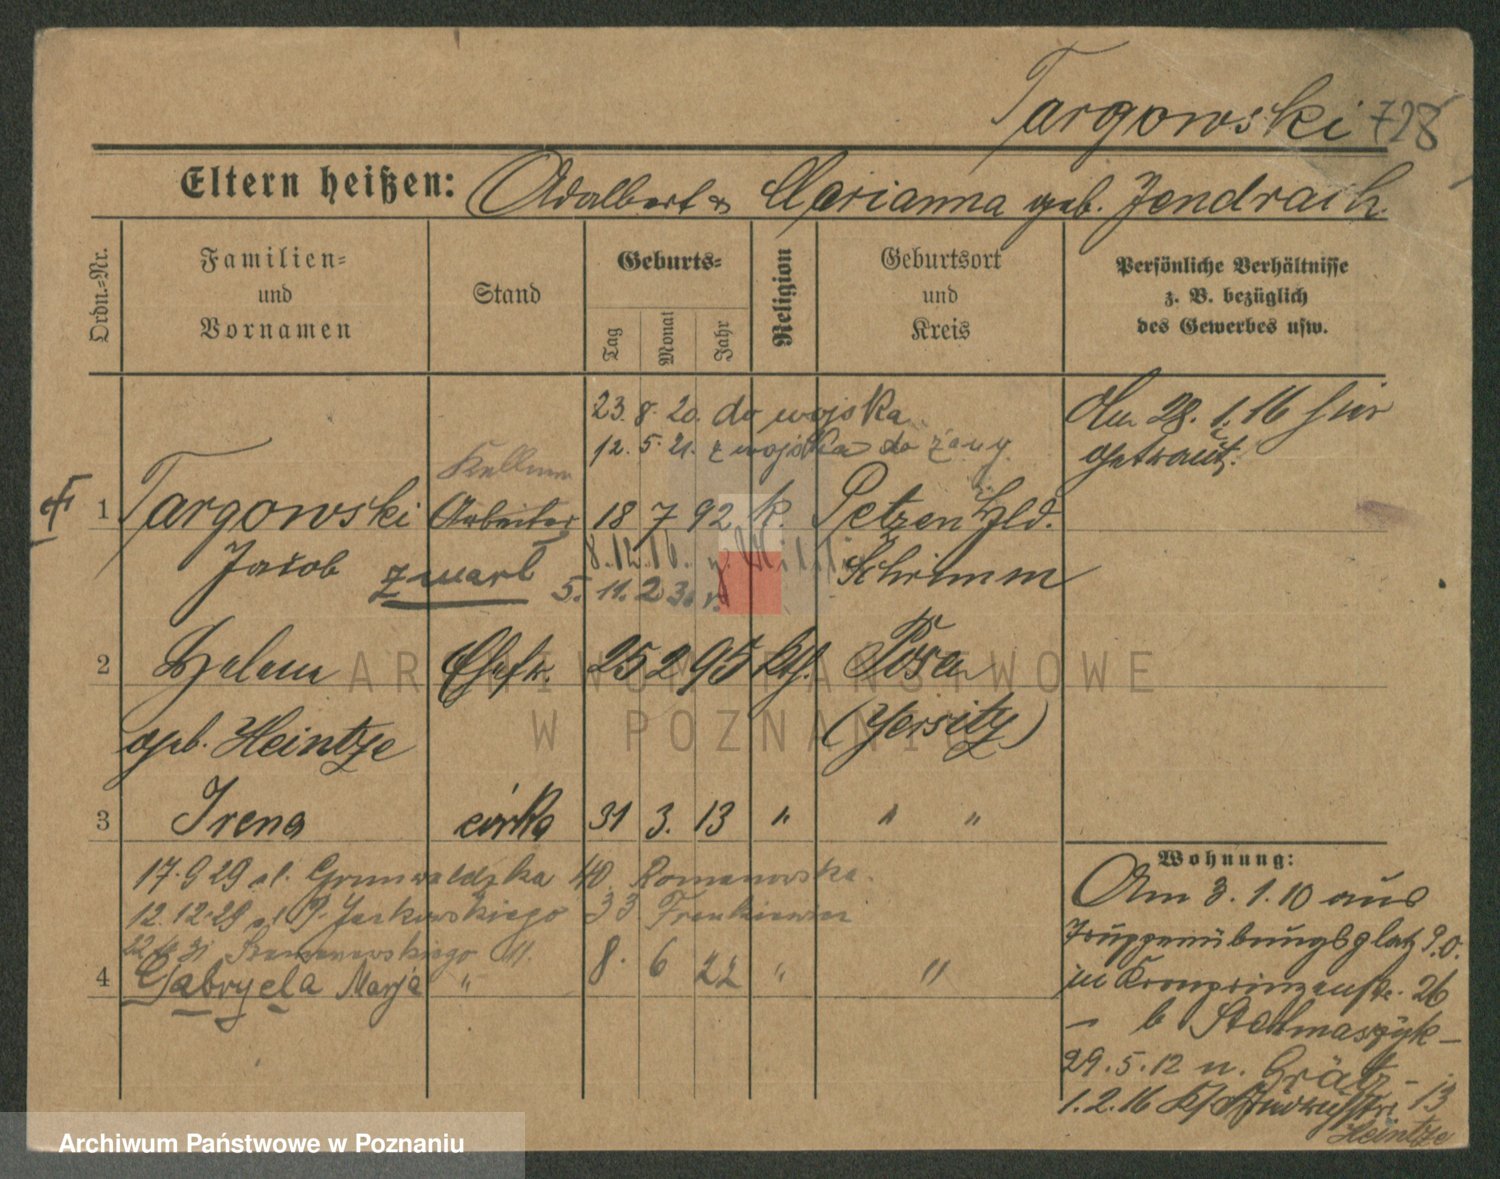 Targowski 728
Eltern heißen: Adalbert & Marianna geb. Jendrach
Ordn.-Nr.
Familien-
und
Vornamen
Stand
Geburts-
Tag
Monat
Jahr
Religion
Geburtsort
und
Kreis
Persönliche Verhältnisse
z. B. bezüglich
des Gewerbes usw.
23. 8. 20. do wojska
12. 5. 21. z wojska do żony
Am 28. 1. 16 hier
getraut.
Kellner
1 Targowski Arbeiter 18 7 92 k. Petzen Hld.
Jacob zmarł 8.12.16. Schrimm
5. 11. 23. r.
2 Helene Ehefr. 25 2 95 kth. Posen
geb. Heintze (Jersitz)
3 Irena córka 31 3. 13 " " "
17.9 29 ul. Grunwaldzka 40 Romanowska.
12.12.28 ul. P. Jackowskiego 33
4 Gabryela Marja " 8. 6 22 " "
Wohnung:
Am 3. 1. 10 aus
Truppenübungsplatz P.O.
in Kronprinzenstr. 26
– b Stachmaszyk –
29. 5. 12 n. Grätz –
1. 2. 16 13
Heintze
ARCHIWUM PAŃSTWOWE
W POZNANIU
Archiwum Państwowe w Poznaniu